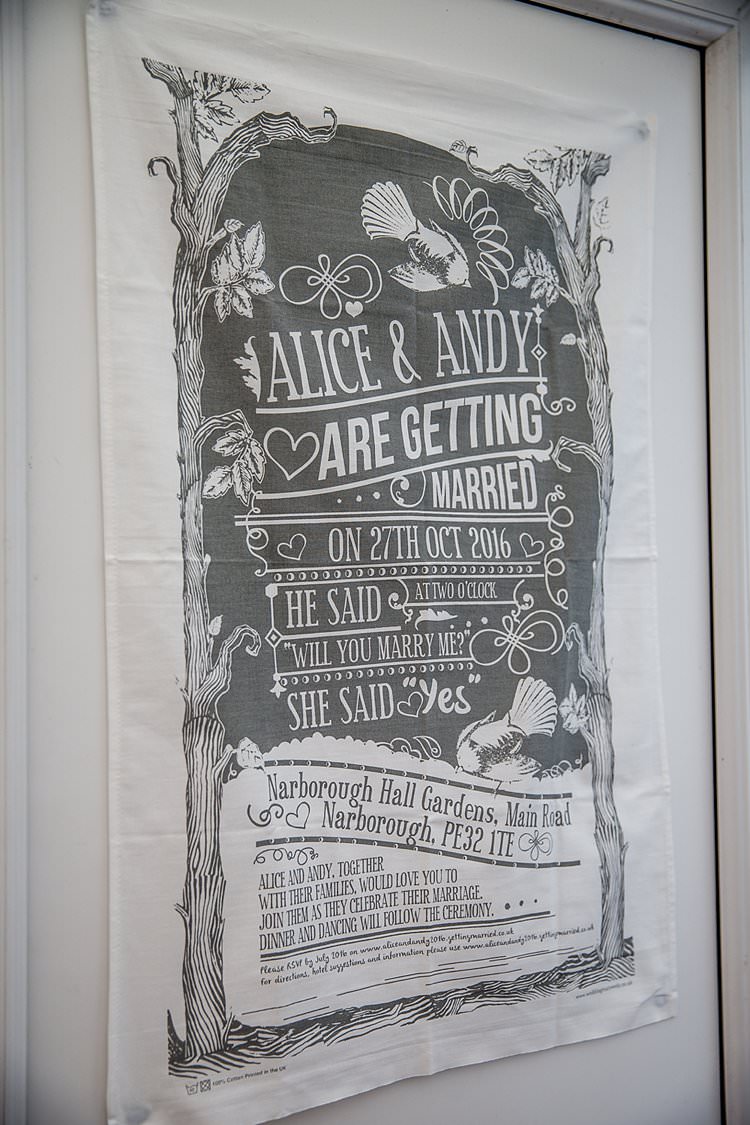 ALICE & ANDY
ARE GETTING
MARRIED
ON 27TH OCT 2016
AT TWO O'CLOCK
HE SAID
"WILL YOU MARRY ME?"
SHE SAID "Yes"
Narborough Hall Gardens, Main Road
Narborough, PE32 1TE
ALICE AND ANDY, TOGETHER
WITH THEIR FAMILIES, WOULD LOVE YOU TO
JOIN THEM AS THEY CELEBRATE THEIR MARRIAGE.
DINNER AND DANCING WILL FOLLOW THE CEREMONY.
Please RSVP by July 2016 on www.aliceandandy2016.gettingmarried.co.uk
for directions, hotel suggestions and information please use www.aliceandandy2016.gettingmarried.co.uk
100% Cotton Printed in the UK